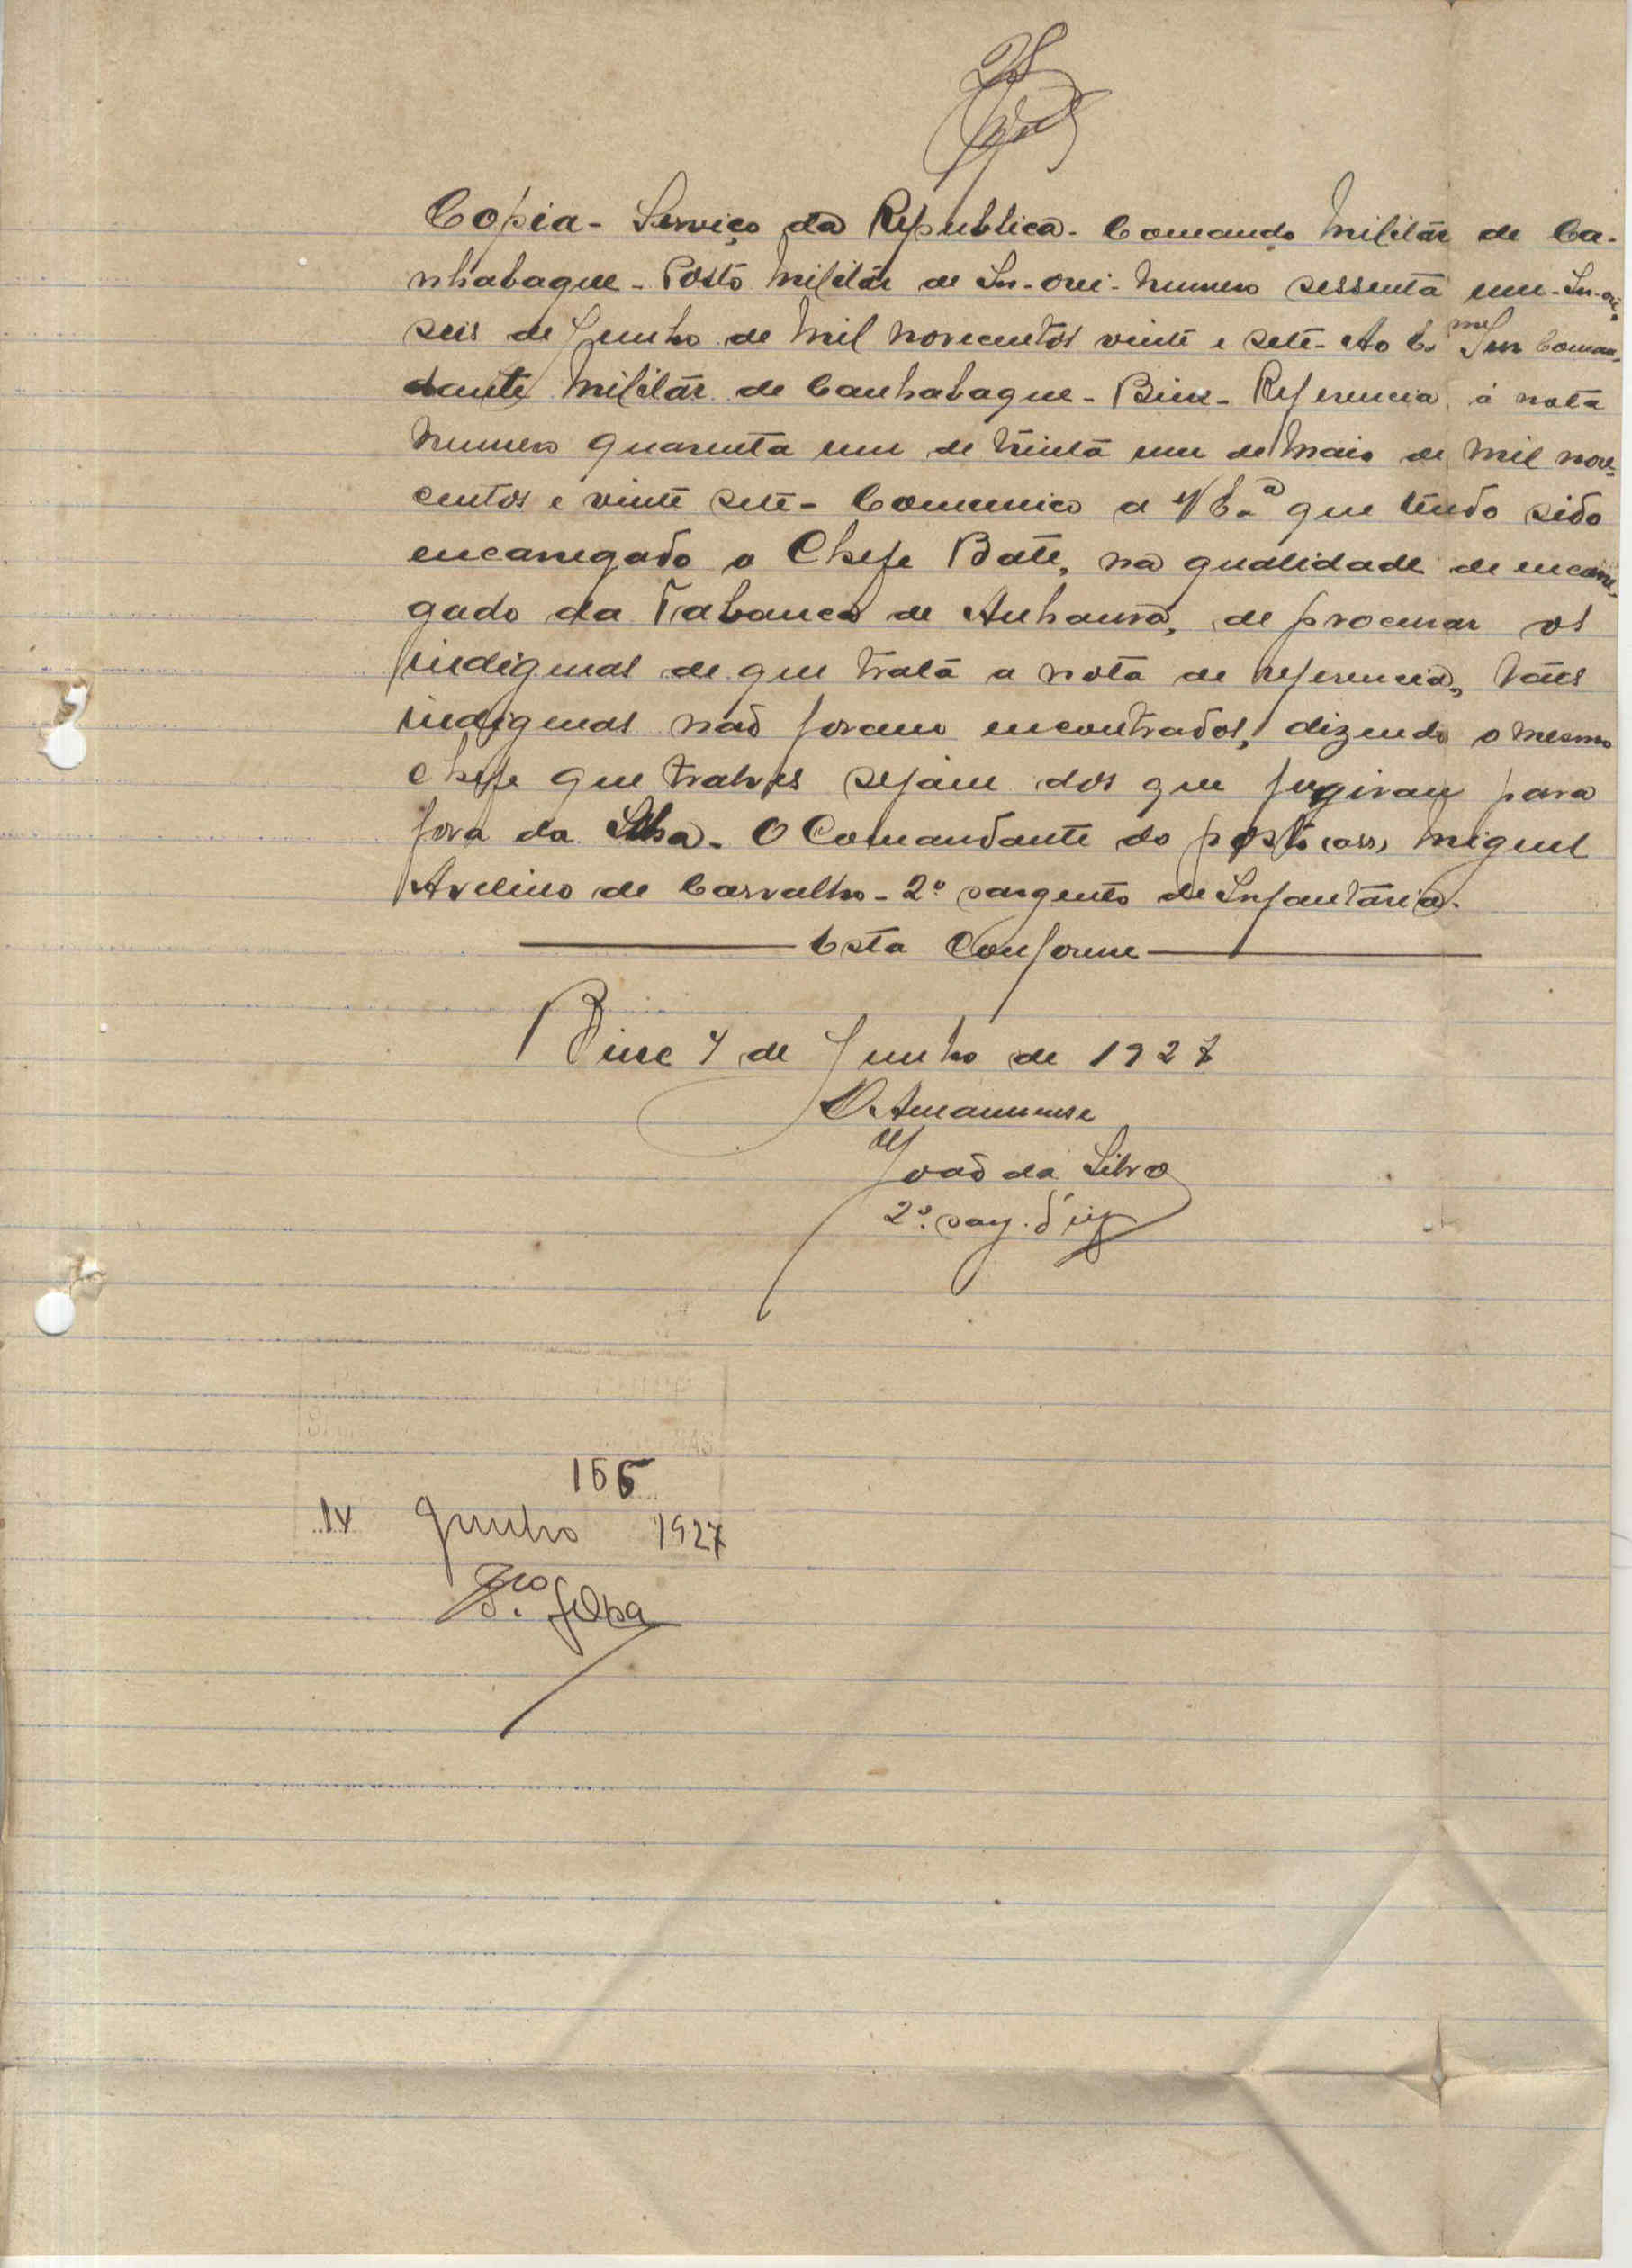 28
Copia - Serviço da Republica - Comando Militár de Ca-
nhabaque - Posto Militár de In-orei - Numero sessenta um - In-orei,
seis de Junho de mil novecentos vinte e sete - Ao Ex.mo Snr Coman-
dante Militár de Canhabaque - Bine - Referencia á nota
numero quarenta um de trinta um de Maio de mil nove-
centos e vinte sete - Comunico a V. Ex.ª que tendo sido
encarregado o Chefe Bate, na qualidade de encarre-
gado da Tabanca de Anhaura, de procurar os
indigenas de que trata a nota de referencia, tais
indigenas não foram encontrados, dizendo o mesmo
chefe que talvês sejam dos que fugiram para
fora da Ilha. O Comandante do posto (ass) Miguel
Avelino de Carvalho - 2º sargento de Infantaria.
Esta Conforme
Bine 7 de Junho de 1927
O Amanuense
João da Silva
2º. sarg. d'inf
155
14 Junho 1927